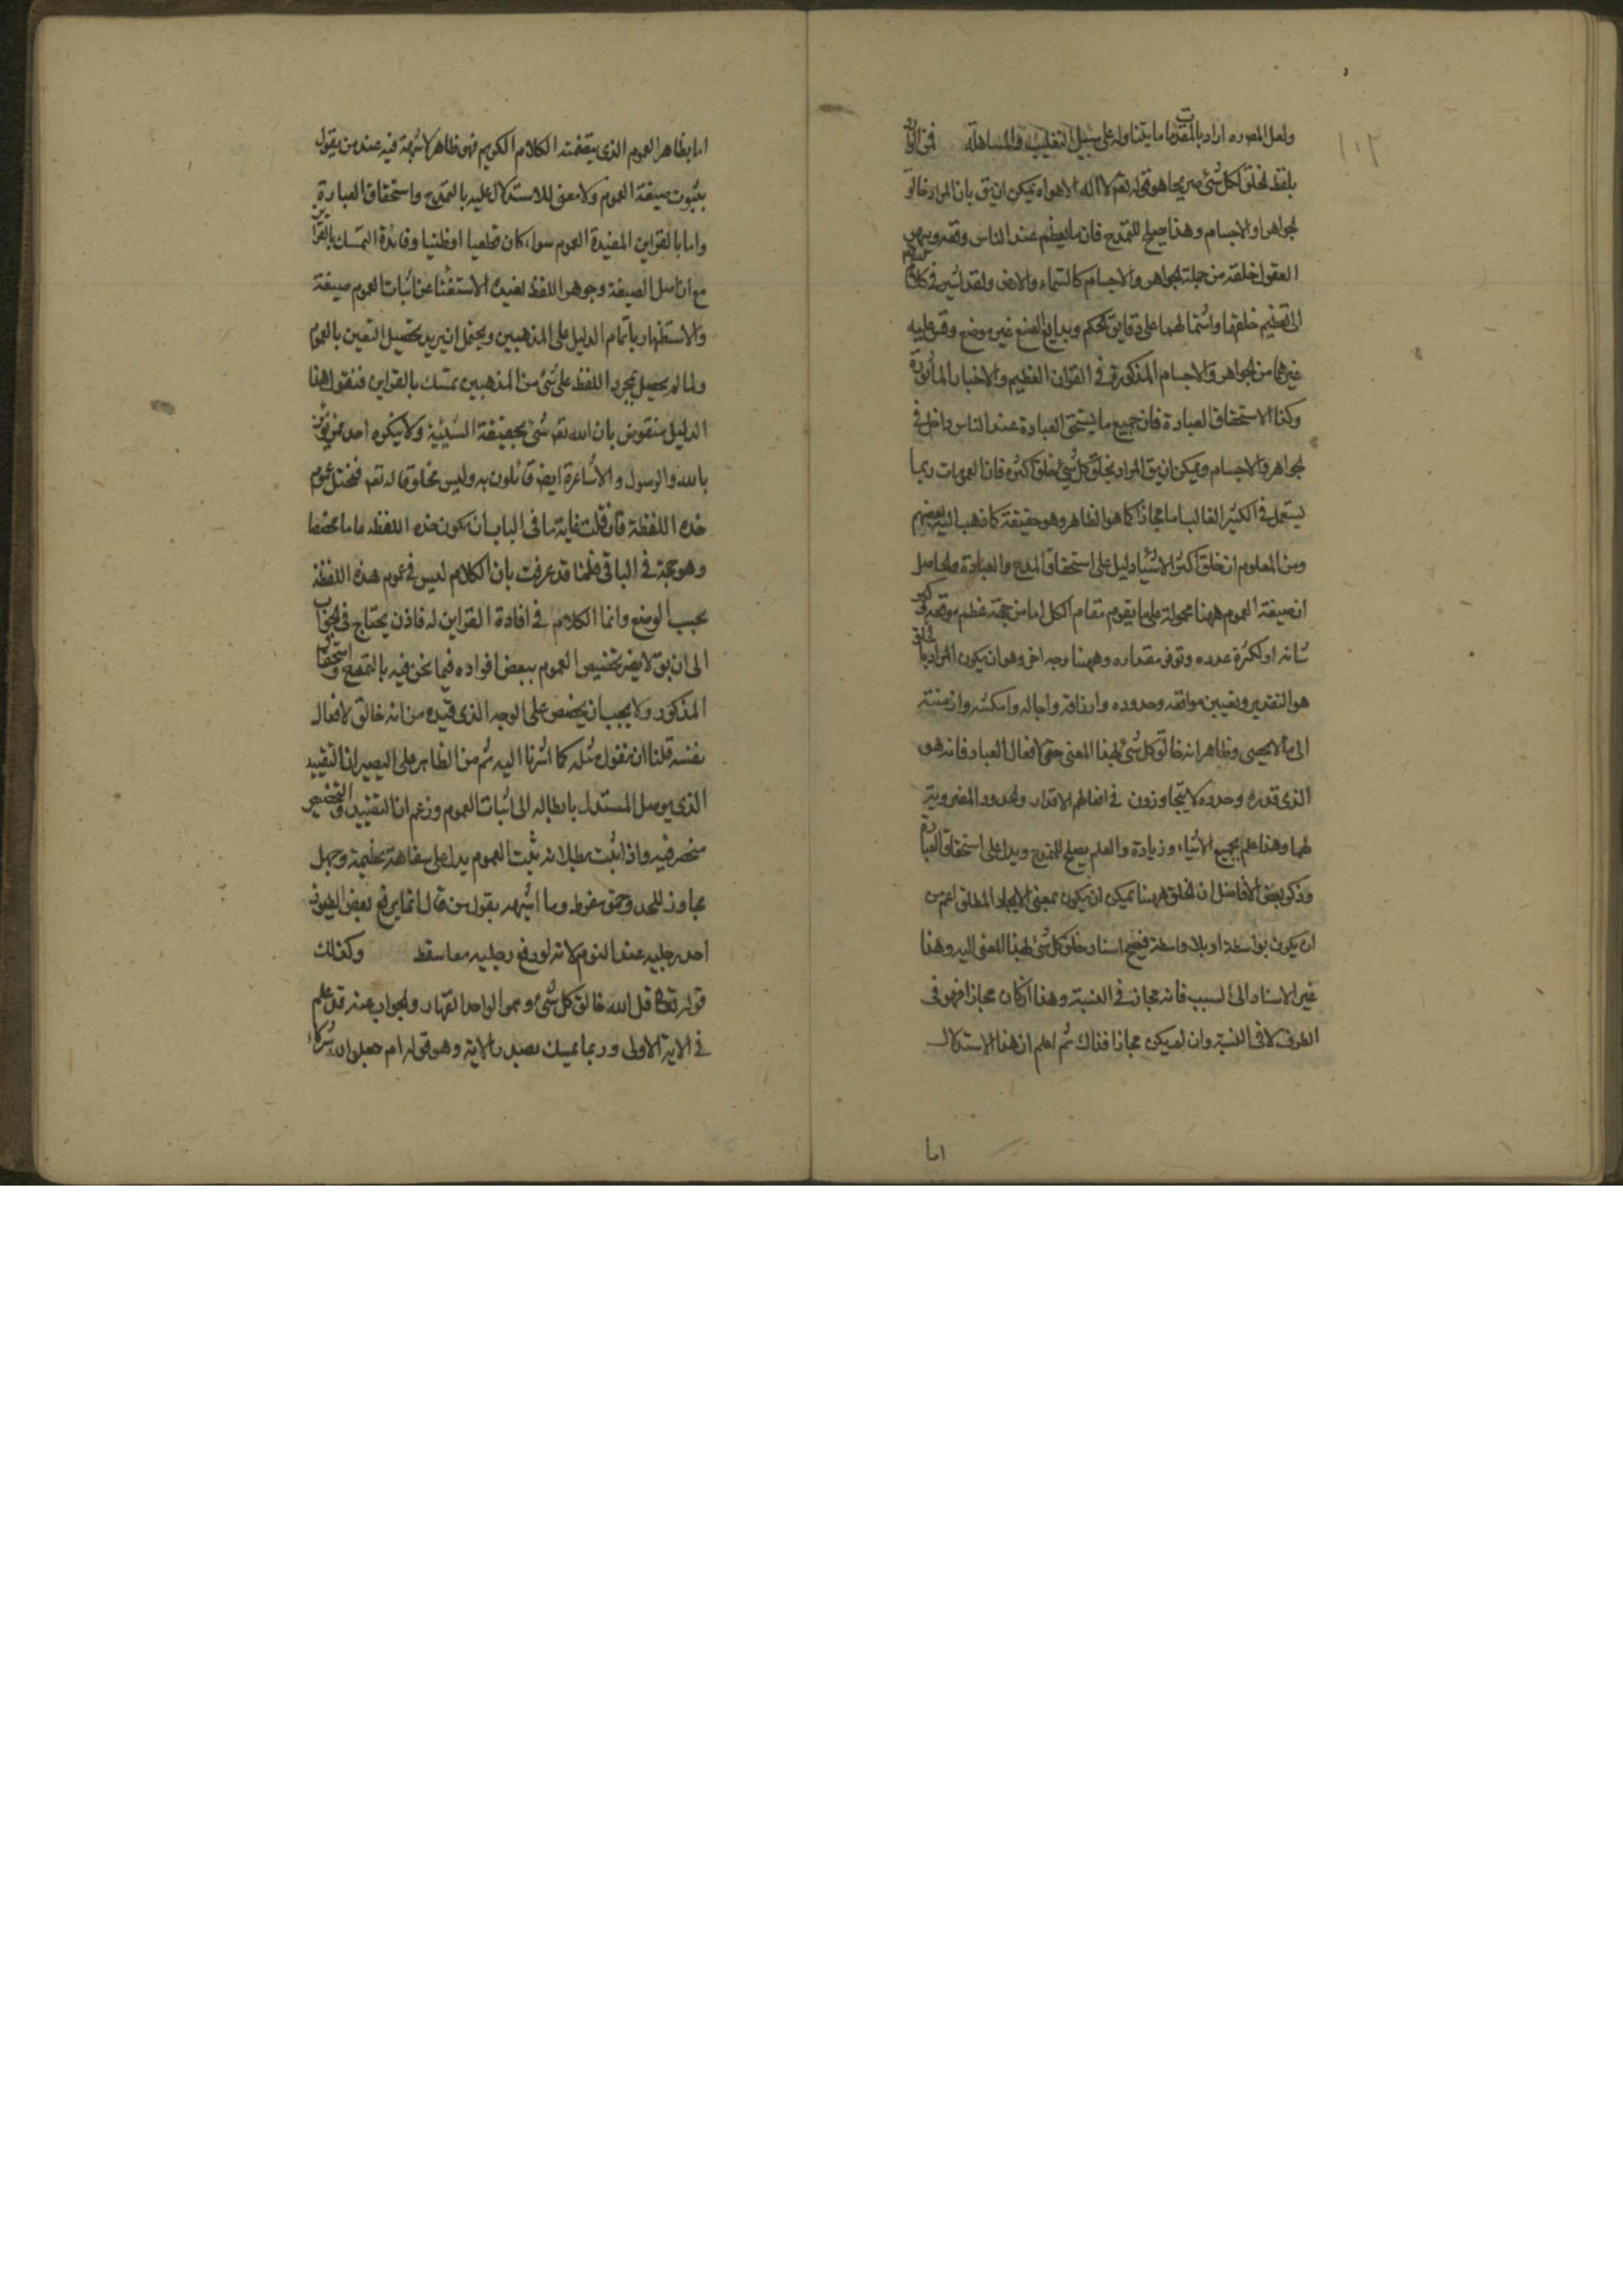 ١٠٢
ولعل المصوره اراد بالمقدمات ما يتناوله على سبيل التغليب والمساهلة
بلفظ الخلق لكل شئ صريحا هو قوله تعم لا اله الا هو اه يمكن ان يق بان المراد خالق
الجواهر والاجسام وهذا يصلح للتمدح فان ما يعظم عند الناس وقعه ويبهر
العقول خلقه من جملة الجواهر والاجسام كالسماء والارض ولقد اشير في كلام
الى تعظيم خلقها واشتمالهما على دقايق الحكم وبدايع الصنع غير موضع وقس عليه
غيرهما من الجواهر والاجسام المذكورة في القران العظيم والاخبار المأثورة
وكذا الاستحقاق العبادة فان جميع ما يستحق العبادة عند الناس داخل في
الجواهر والاجسام ويمكن ان يق المراد بخلق كل شئ خلق اكثره فان العمومات ربما
يستعمل في الكثير الغالب اما مجازا كما هو الظاهر وهو حقيقة كما ذهب اليه بعضهم
ومن المعلوم ان خلق اكثر الاشياء دليل على استحقاق المدح والعبادة والحاصل
ان صيغة العموم ههنا محمولة على ما يقوم مقام الكل اما من جهة عظم موقعه وكبر
شانه او لكثرة عدده وتوفر مقداره وههنا وجه اخر وهو ان يكون المراد بالخلق
هو التقدير وتعيين مواقعه وحدوده وارزاقه واجاله وامكنته وازمنته
الى ما لا يحصى وظاهر انه خالق كل شئ بهذا المعنى حتى لافعال العباد فانه هو
الذى قدره وحدده لا يتجاوزون في افعالهم الاقدار والحدود المضروبة
لهما وهذا علم بجميع الاشياء وزيادة والعلم يصلح للتمدح ويدل على استحقاق العبادة
وذكر بعض الافاضل ان الخلق ههنا يمكن ان يكون بمعنى الايجاد المطلق اعم من
ان يكون بواسطة او بلا واسطة فيصح اسناد خلق كل شئ بهذا المعنى اليه وهذا
غير الاسناد الى السبب فانه مجاز في النسبة وهذا ان كان مجازا فهو في
الطرف لا في النسبة وان لم يكن مجازا فذاك ثم اعلم ان هذا الاستدلال
اما
اما بظاهر العموم الذى يتضمنه الكلام الكريم فهو ظاهر لا شبهة فيه عند من يقول
بثبوت صيغة العموم ولا معنى للاستدلال عليه بالتمدح واستحقاق العبادة
واما بالقراين المفيدة العموم سواء كان قطعيا او ظنيا وفائدة التمسك بالقراين
مع ان اصل الصيغة وجوهر اللفظ يفيده الاستغناء عن اثبات العموم صيغة
والاستظهار باتمام الدليل على المذهبين ويحتمل ان يريد تحصيل التعين بالعموم
ولما لم يحصل بمجرد اللفظ على شئ من المذهبين تمسك بالقراين فنقول هذا
الدليل منقوض بان الله تعم شئ بحقيقة الشيئية ولا ينكره احد ممن يؤمن
بالله والرسول والاشاعرة ايضا قائلون به وليس مخلوقا له تعم فيختل عموم
هذه اللفظة فان قلت غاية ما في الباب ان تكون هذه اللفظة عاما مخصصا
وهو حجة في الباقي قلنا قد عرفت بان الكلام ليس في عموم هذه اللفظة
بحسب الوضع وانما الكلام في افادة القراين له فاذن يحتاج في الجواب
الى ان يق لا يضر تخصيص العموم ببعض افراده فيما نحن فيه بالتمدح واستحقاق
المذكور ولا يجب ان يخصص على الوجه الذى قيده من انه خالق لافعال
نفسه قلنا ان نقول مثله كما اشرنا اليه ثم من الظاهر على البصير ان التقييد
الذى يوصل المستدل بابطاله الى اثبات العموم وزعم ان التقييد والتخصيص
منحصر فيه واذا ثبت بطلانه ثبت العموم يدل على سفاهة عظيمة وجهل
مجاوز للحد وحمق مفوط وما اشبهه بقول من قال انما يرفع بعض الطيور
احد رجليه عند النوم لانه لو رفع رجليه معا سقط وكذلك
قوله تعالى قل الله خالق كل شئ وهو الواحد القهار والجواب عنه قد علم
في الاية الاولى وربما تمسك بصدر الاية وهو قوله ام جعلوا لله شركاء